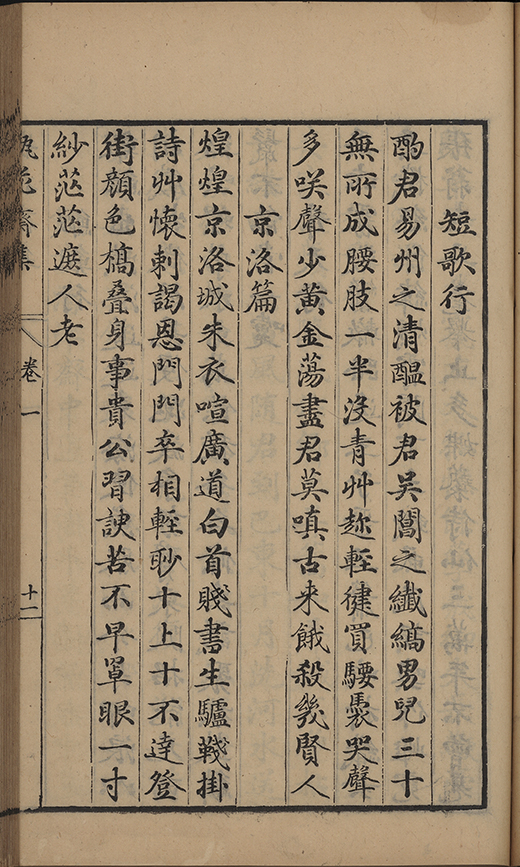 短歌行
酌君易州之清醖被君吳閶之纖縞男兒三十
無所成腰肢一半沒青艸趂輕徤買騕褭哭聲
多咲聲少黃金蕩盡君莫嗔古来餓殺幾賢人
京洛篇
煌煌京洛城朱衣喧廣道白首賤書生驢韈掛
詩艸懷刺謁恩門門卒相輕眇十上十不達登
街顔色槁疊身事貴公習諛苦不早罩眼一寸
紗茫茫遮人老
瓶花齋集 卷一 十二